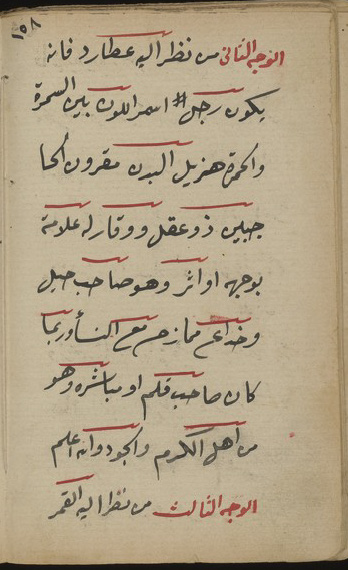 ١٥٨
الوجه الثانى من نظر اليه عطارد فانه
يكون رجل اسمر اللون بين السمرة
والحمرة هزيل البدن مقرون الحا
جبين ذو عقل ووقار له علامة
بوجهه او اثر وهو صاحب حيل
وخداع ممازح مع النسأ وربما
كان صاحب قلم او مباشره وهو
من اهل الكرم والجود والله اعلم
الوجه الثالث من نظر اليه القمر